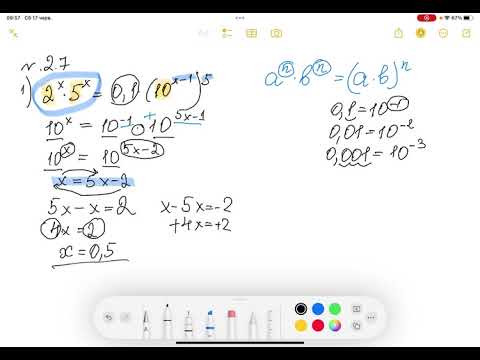 09:57 Сб 17 черв. 67%
№ 2.7
1) 2ˣ·5ˣ = 0,1 (10ˣ⁻¹)⁵
10ˣ = 10⁻¹ · 10⁵ˣ⁻¹
+
10ˣ = 10⁵ˣ⁻²
x = 5x-2
5x-x=2
4x=2
x=0,5
x-5x=-2
+4x=+2
aⁿ·bⁿ=(a·b)ⁿ
0,1=10⁻¹
0,01=10⁻²
0,001=10⁻³